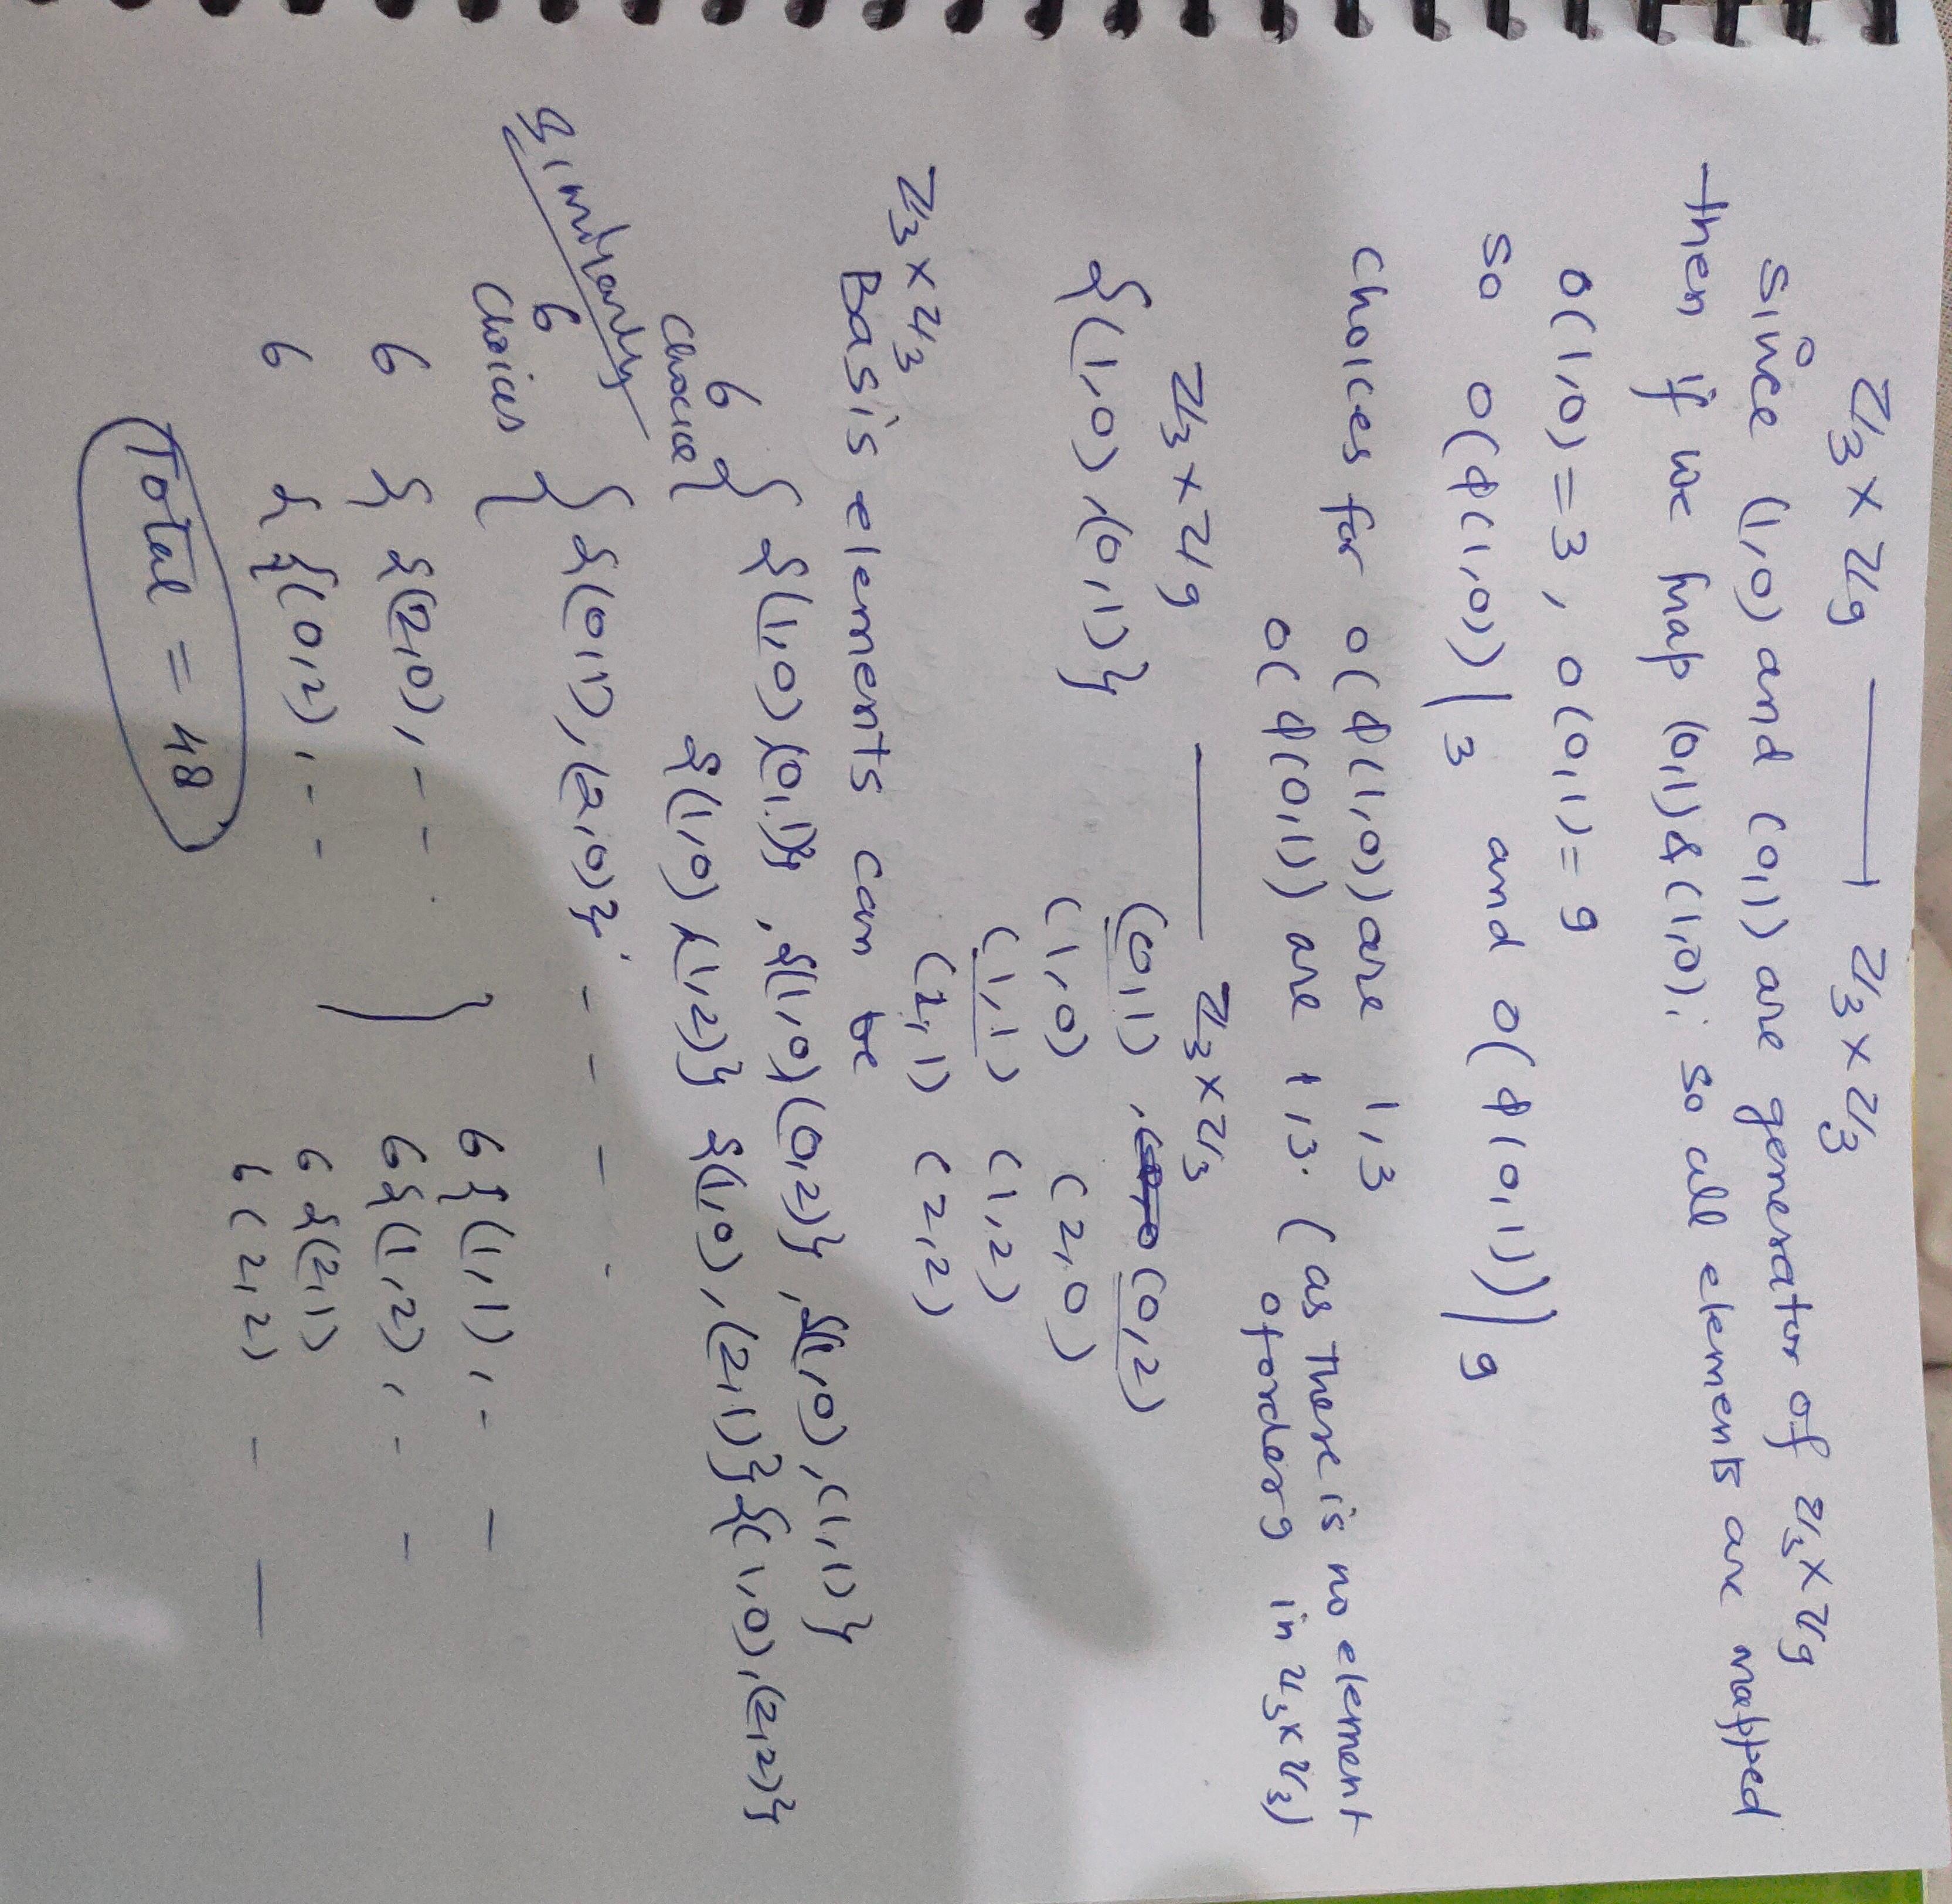 ℤ₃ × ℤ₉ ⟶ ℤ₃ × ℤ₃
Since (1,0) and (0,1) are generator of ℤ₃ × ℤ₉
then if we map (0,1) & (1,0); so all elements are mapped
O(1,0) = 3, O(0,1) = 9
so O(φ(1,0)) | 3 and O(φ(0,1)) | 9
choices for O(φ(1,0)) are 1,3
O(φ(0,1)) are 1,3. (as there is no element
of order 9 in ℤ₃ × ℤ₃)
ℤ₃ × ℤ₉ ⟶ ℤ₃ × ℤ₃
{(1,0),(0,1)} (0,1), (0,2)
(1,0) (2,0)
(1,1) (1,2)
(2,1) (2,2)
ℤ₃ × ℤ₃
Basis elements can be
6 choice { {(1,0),(0,1)}, {(1,0),(0,2)}, {(1,0),(1,1)}
{(1,0),(1,2)} {(1,0),(2,1)} {(1,0),(2,2)}
Similarly
6 choices { {(0,1),(2,0)}, - - - .
6 { {(2,0), - - 6 {(1,1), - -
6 { {(0,2), - - 6 {(1,2), - -
6 {(2,1)
6 (2,2) - —
Total = 48